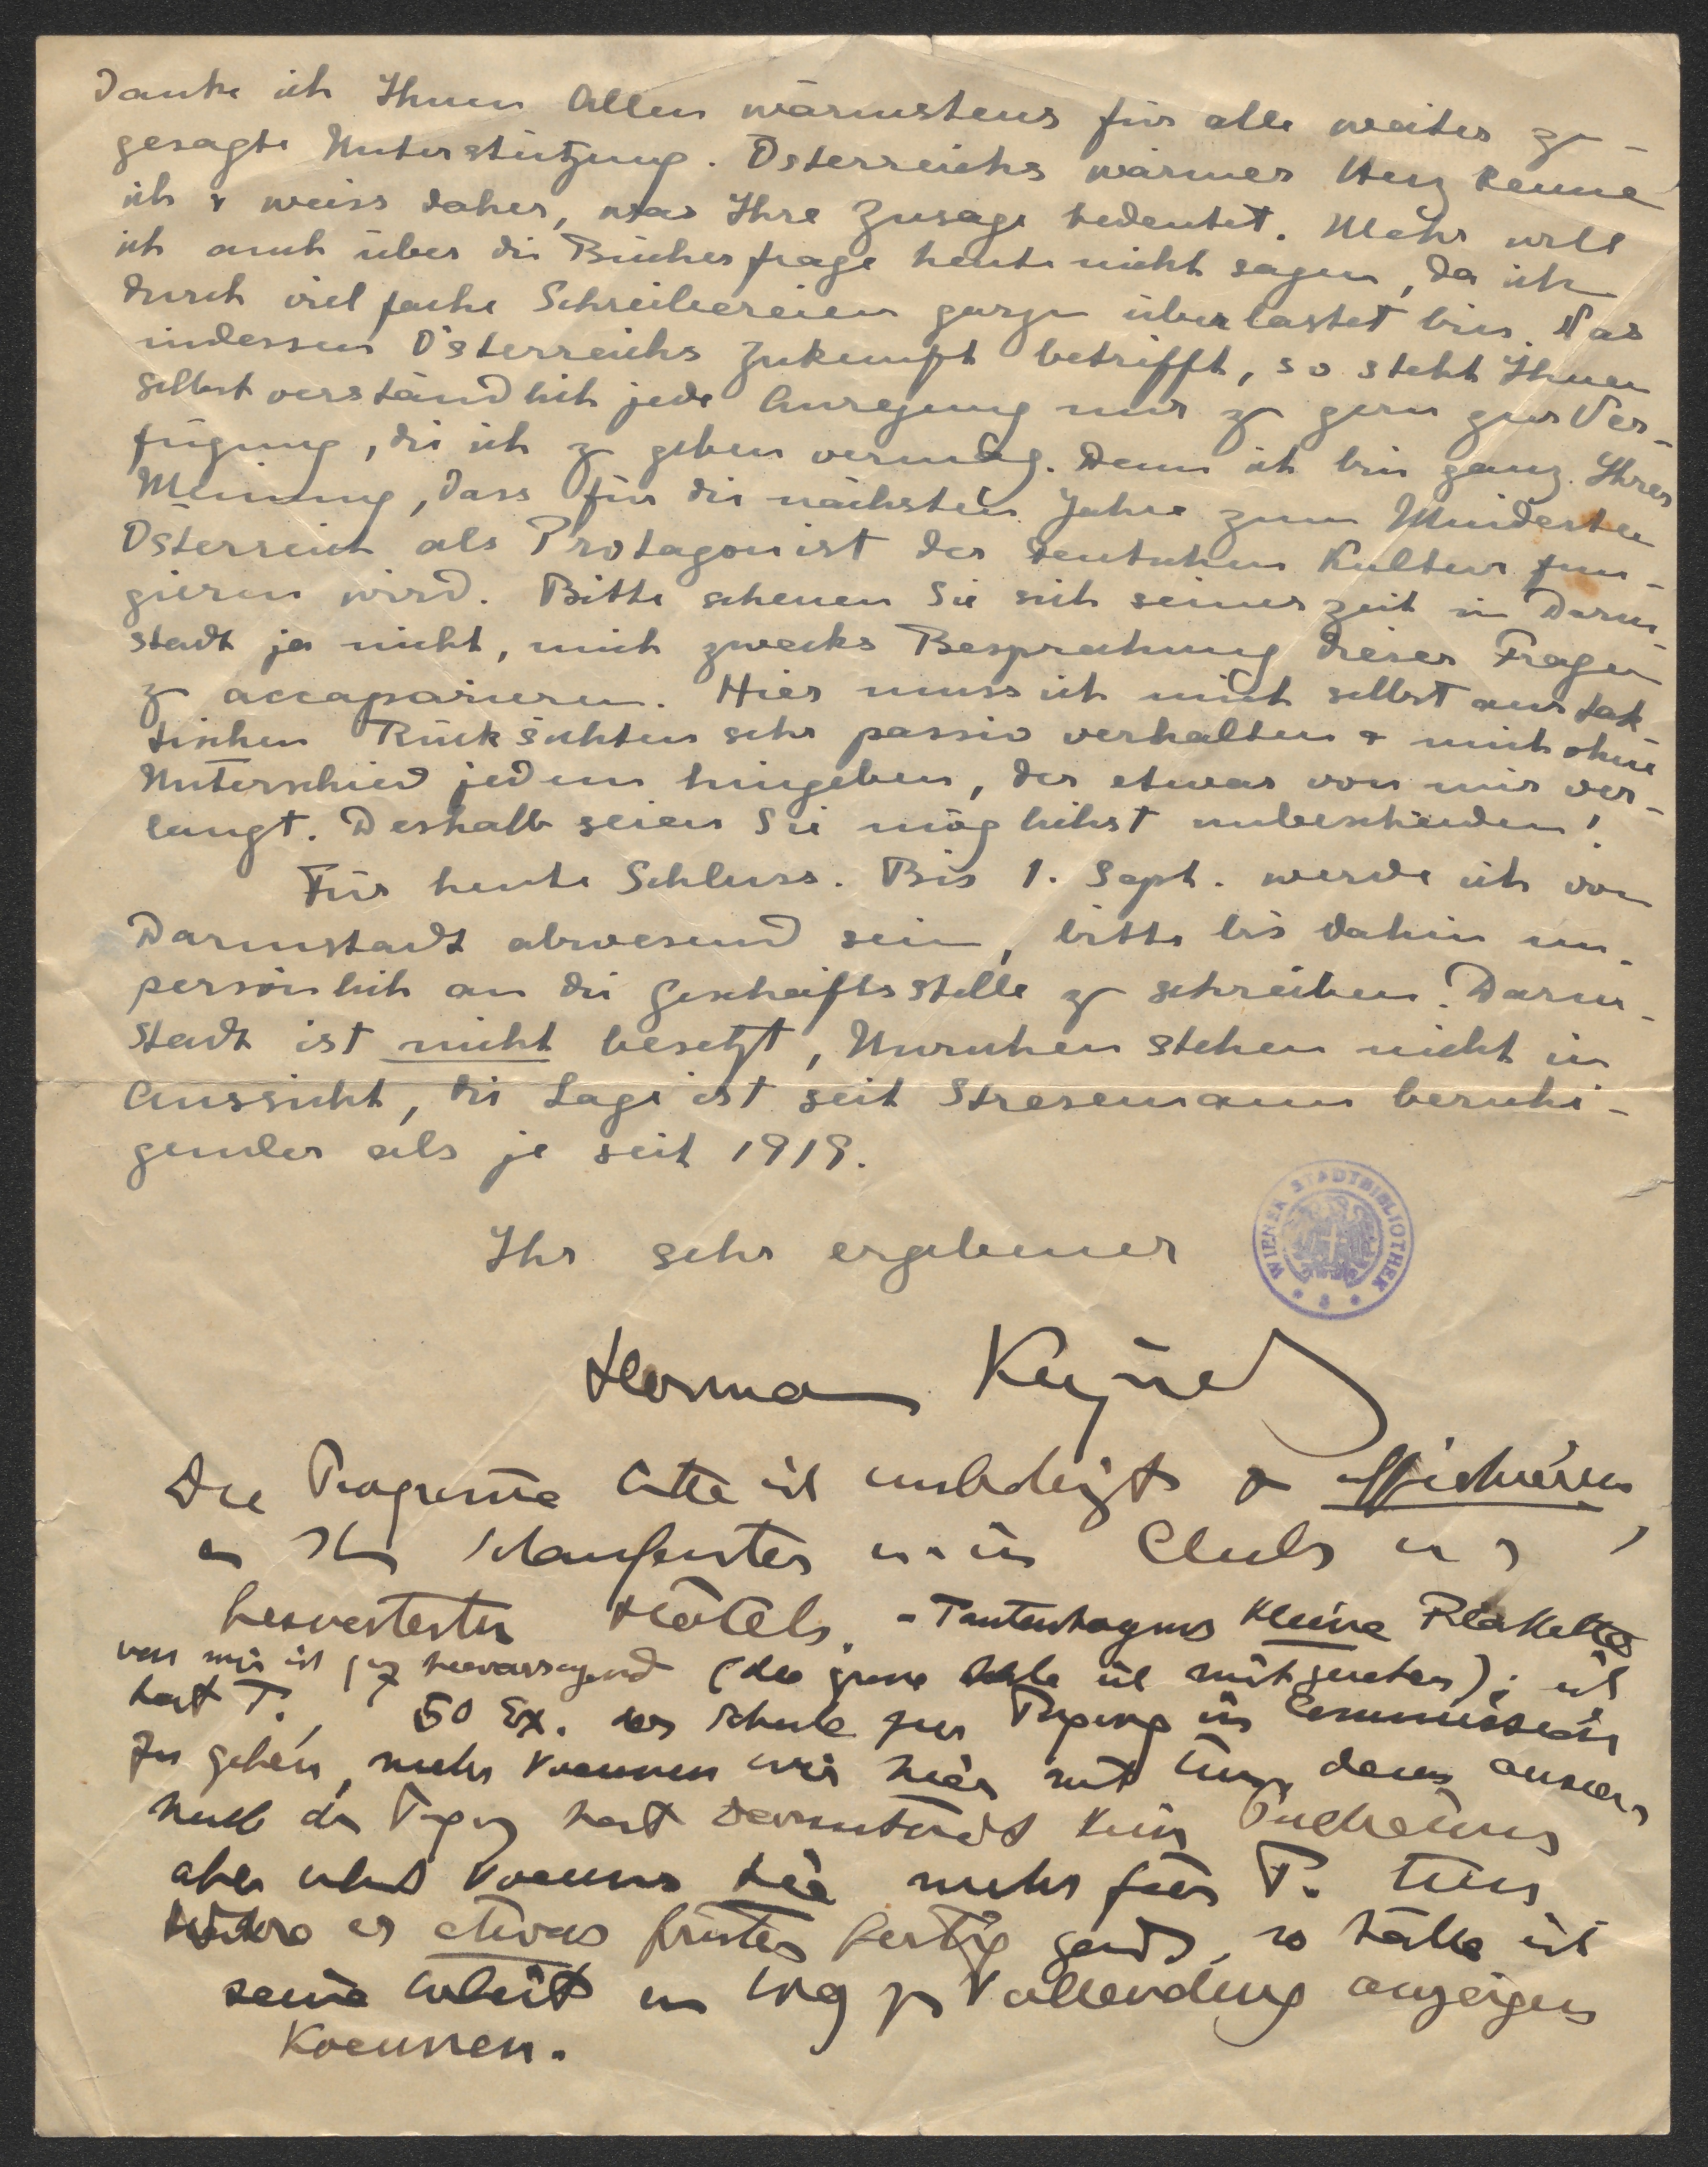 Danke ich Ihnen Allen wärmstens für alle weiter zu-
gesagte Unterstützung. Österreichs warmes Herz kenne
ich & weiss daher, was Ihre Zusage bedeutet. Mehr will
ich auch über die Bücherfrage heute nicht sagen, da ich
durch vielfache Schreibereien ganz überlastet bin. Was
indessen Österreichs Zukunft betrifft, so steht Ihnen
selbstverständlich jede Anregung nur zu gern zur Ver-
fügung, die ich zu geben vermag. Denn ich bin ganz Ihrer
Meinung, dass für die nächsten Jahre zum Mindesten
Österreich als Protagonist der deutschen Kultur fun-
gieren wird. Bitte scheuen Sie sich seinerzeit in Darm-
stadt ja nicht, mich zwecks Besprechung dieser Fragen
zu accaparieren. Hier muss ich mich selbst aus tak-
tischen Rücksichten sehr passiv verhalten & mich ohne
Unterschied jedem hingeben, der etwas von mir ver-
langt. Deshalb seien Sie möglichst unbescheiden!
Für heute Schluss. Bis 1. Sept. werde ich von
Darmstadt abwesend sein, bitte bis dahin un-
persönlich an die Geschäftsstelle zu schreiben. Darm-
stadt ist nicht besetzt, Unruhen stehen nicht in
Aussicht, die Lage ist seit Stresemann beruhi-
gender als je seit 1919.
Ihr sehr ergebener
WIENER STADTBIBLIOTHEK
Hermann Keyserling
Die Programme bitte ich unbedingt zu affichieren,
in Schaufenster u. in Clubs und
Hôtels. - Tautenhayns kleine Plakette
von mir ist hervorragend (die grosse habe ich nicht gesehen); ich
bat T., 50 Ex. der Schule zur Tagung in Commission
zu geben, mehr koennen wir hier nicht tun, denn ausser-
halb der Tagung hat Darmstadt kein Publikum
aber koennen Sie mehr für T. tun
Hätte er etwas früher fertig so hätte ich
seine Arbeit im Weg zur Vollendung anzeigen
koennen.